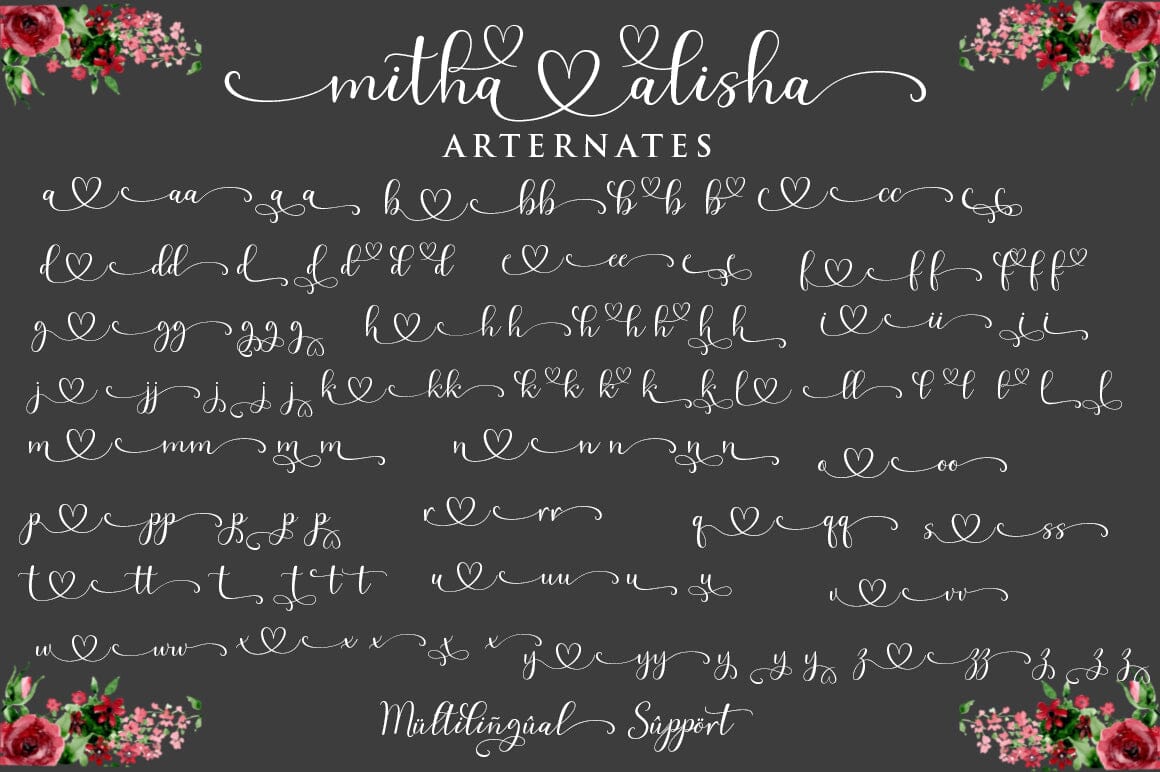 mitha alisha
ARTERNATES
a aa a a b bb b b b c cc c c
d dd d d d d d e ee e e f f f f f f
g gg g g g h h h h h h h h i ii i i
j jj j j j k kk k k k k k l ll l l l l l
m mm m m n n n n n o oo
p pp p p p r rr q qq s ss
t tt t t t t u uu u u v vv
w ww x x x x x y yy y y y z zz z z z
Mültilingûal Sûppört